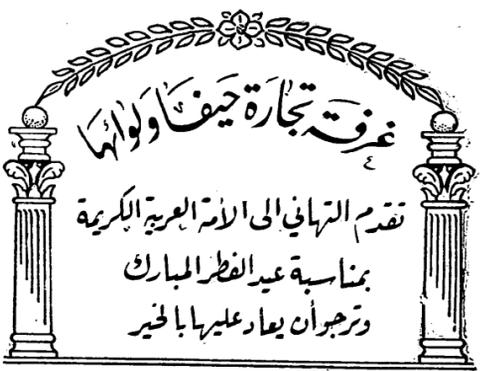 غرفة تجارة حيفا ولوائها
تقدم التهاني الى الأمة العربية الكريمة
بمناسبة عيد الفطر المبارك
وترجو أن يعاد عليها بالخير